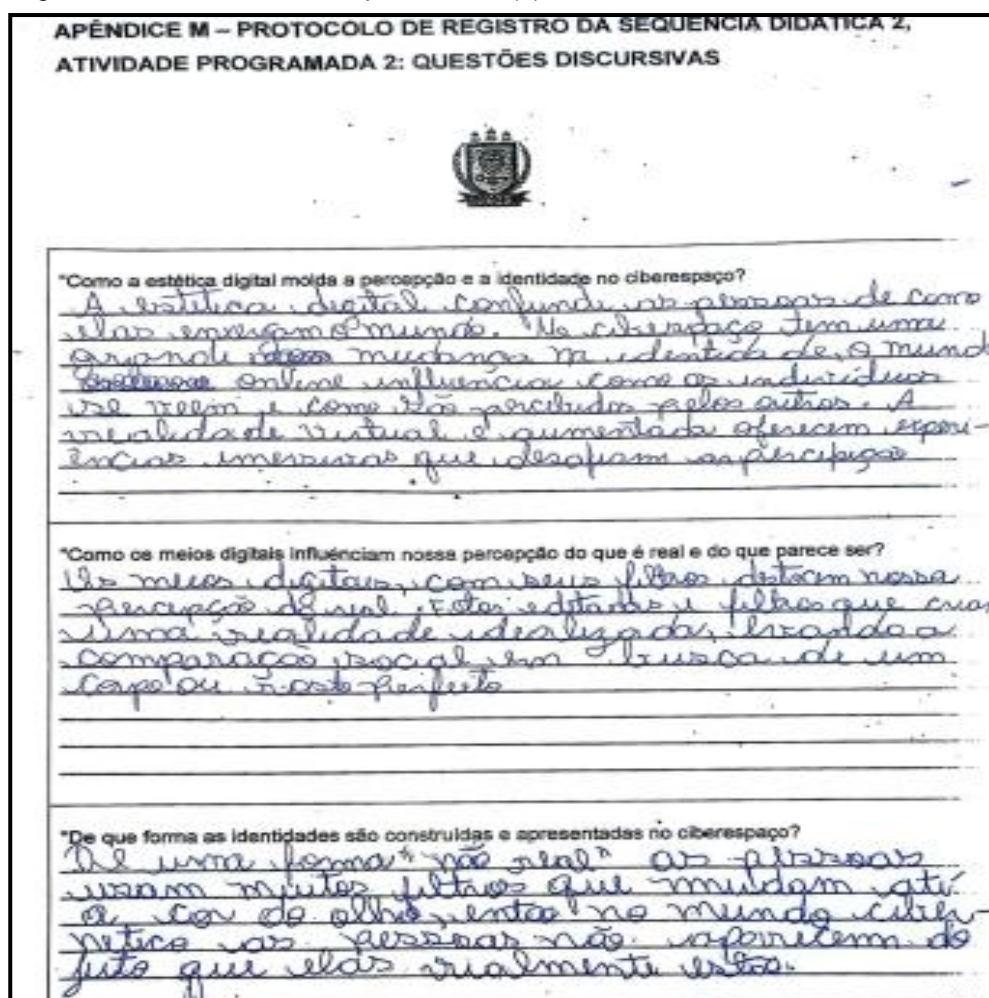 APÊNDICE M – PROTOCOLO DE REGISTRO DA SEQUÊNCIA DIDÁTICA 2,
ATIVIDADE PROGRAMADA 2: QUESTÕES DISCURSIVAS
"Como a estética digital molda a percepção e a identidade no ciberespaço?
A estética digital confundi as pessoas de como
elas enxergam o mundo. No ciberespaço tem uma
grande mudança na identidade, o mund
online influência como os indivíduos
se veem e como são percibidos pelos outros. A
realidade virtual e aumentada oferecem experi-
ências imersivas que desafiam a percepção
"Como os meios digitais influênciam nossa percepção do que é real e do que parece ser?
Os meios digitais, com seus filtros distorcem nossa
percepção do real. Fotos editadas e filtros que criar
uma realidade idealizada, levando a
comparação social em busca de um
corpo ou rosto perfeito
"De que forma as identidades são construídas e apresentadas no ciberespaço?
De uma forma "não real" as pessoas
usam muitos filtros que mudam até
a cor do olho, então no mundo ciber-
netico as pessoas não aparecem do
jeito que elas realmente estão.